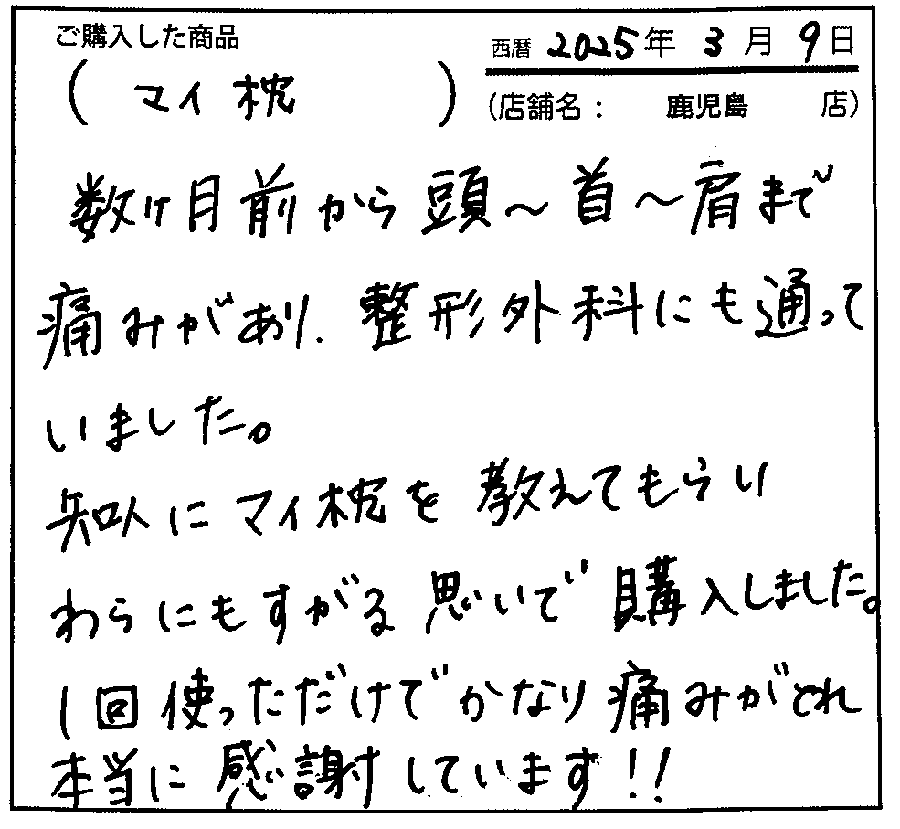 ご購入した商品
西暦 2025年 3月 9日
( マイ枕 )
(店舗名: 鹿児島 店)
数ヶ月前から頭～首～肩まで
痛みがあり、整形外科にも通って
いました。
知人にマイ枕を教えてもらい
わらにもすがる思いで購入しました。
1回使っただけでかなり痛みがとれ
本当に感謝しています!!